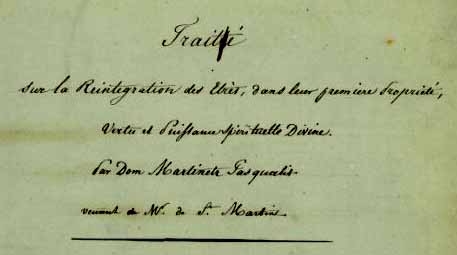 Traité
sur la Reintegration des Etrès, dans leur premiere Propriété,
Vertu et Puissance spirituelle Divine.
Par Dom Martinets Pasqualis
venant de Mr. de St. Martin.